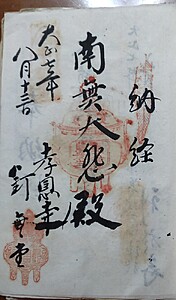 納経
南無大悲殿
孝恩寺
釘無堂
大正七年
八月十三日